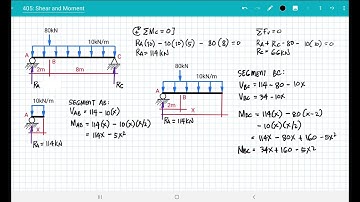 405: Shear and Moment
80kN
10kN/m
A
B
C
2m
8m
RA
RC
[ΣMc = 0]
RA(10) - 10(10)(5) - 80(8) = 0
RA = 114kN
ΣFv = 0
RA + RC - 80 - 10(10) = 0
RC = 66kN
10kN/m
A
x
RA = 114kN
SEGMENT AB:
VAB = 114 - 10(x)
MAB = 114(x) - 10(x)(x/2)
= 114x - 5x²
80kN
10kN/m
A
2m
B
x
RA = 114kN
SEGMENT BC:
VBC = 114 - 80 - 10x
VBC = 34 - 10x
MBC = 114(x) - 80(x-2)
- 10(x)(x/2)
= 114x - 80x + 160 - 5x²
MBC = 34x + 160 - 5x²